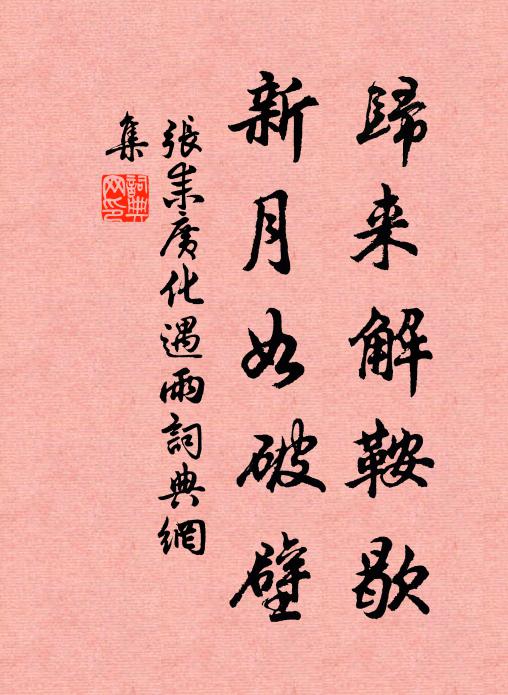 歸来解鞍歇
新月如破壁
張耒廣化遇雨詞典網
集
詞典网印